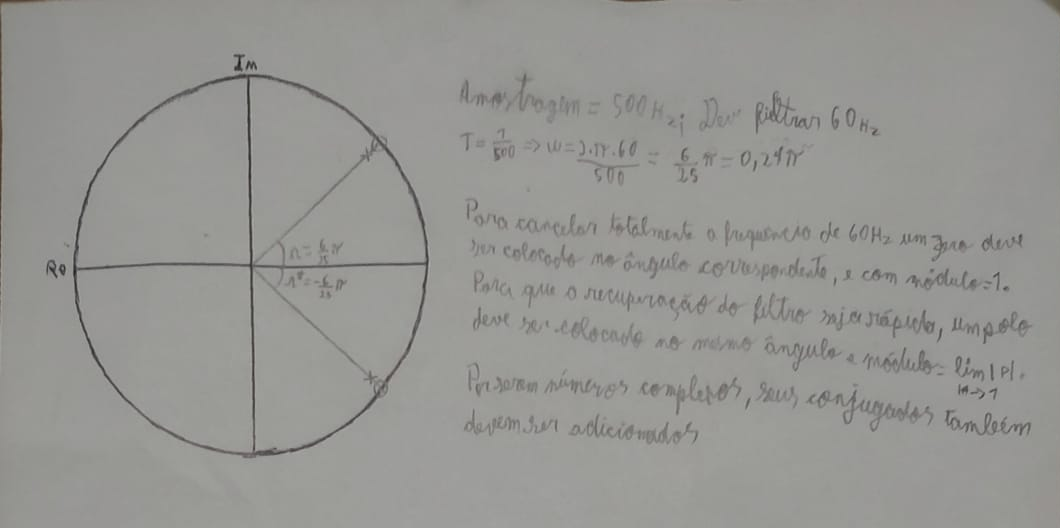 Im
Re
r = 6/25 π
r* = -6/25 π
Amostragem = 500Hz; Deve filtrar 60Hz
T = 1/500 => w = 2.π.60/500 = 6/25 π = 0,24π
Para cancelar totalmente a frequência de 60Hz um zero deve
ser colocado no ângulo correspondente, e com módulo=1.
Para que a recuperação do filtro seja rápida, um polo
deve ser colocado no mesmo ângulo e módulo = lim |P|.
m->1
Por serem números complexos, seus conjugados também
devem ser adicionados